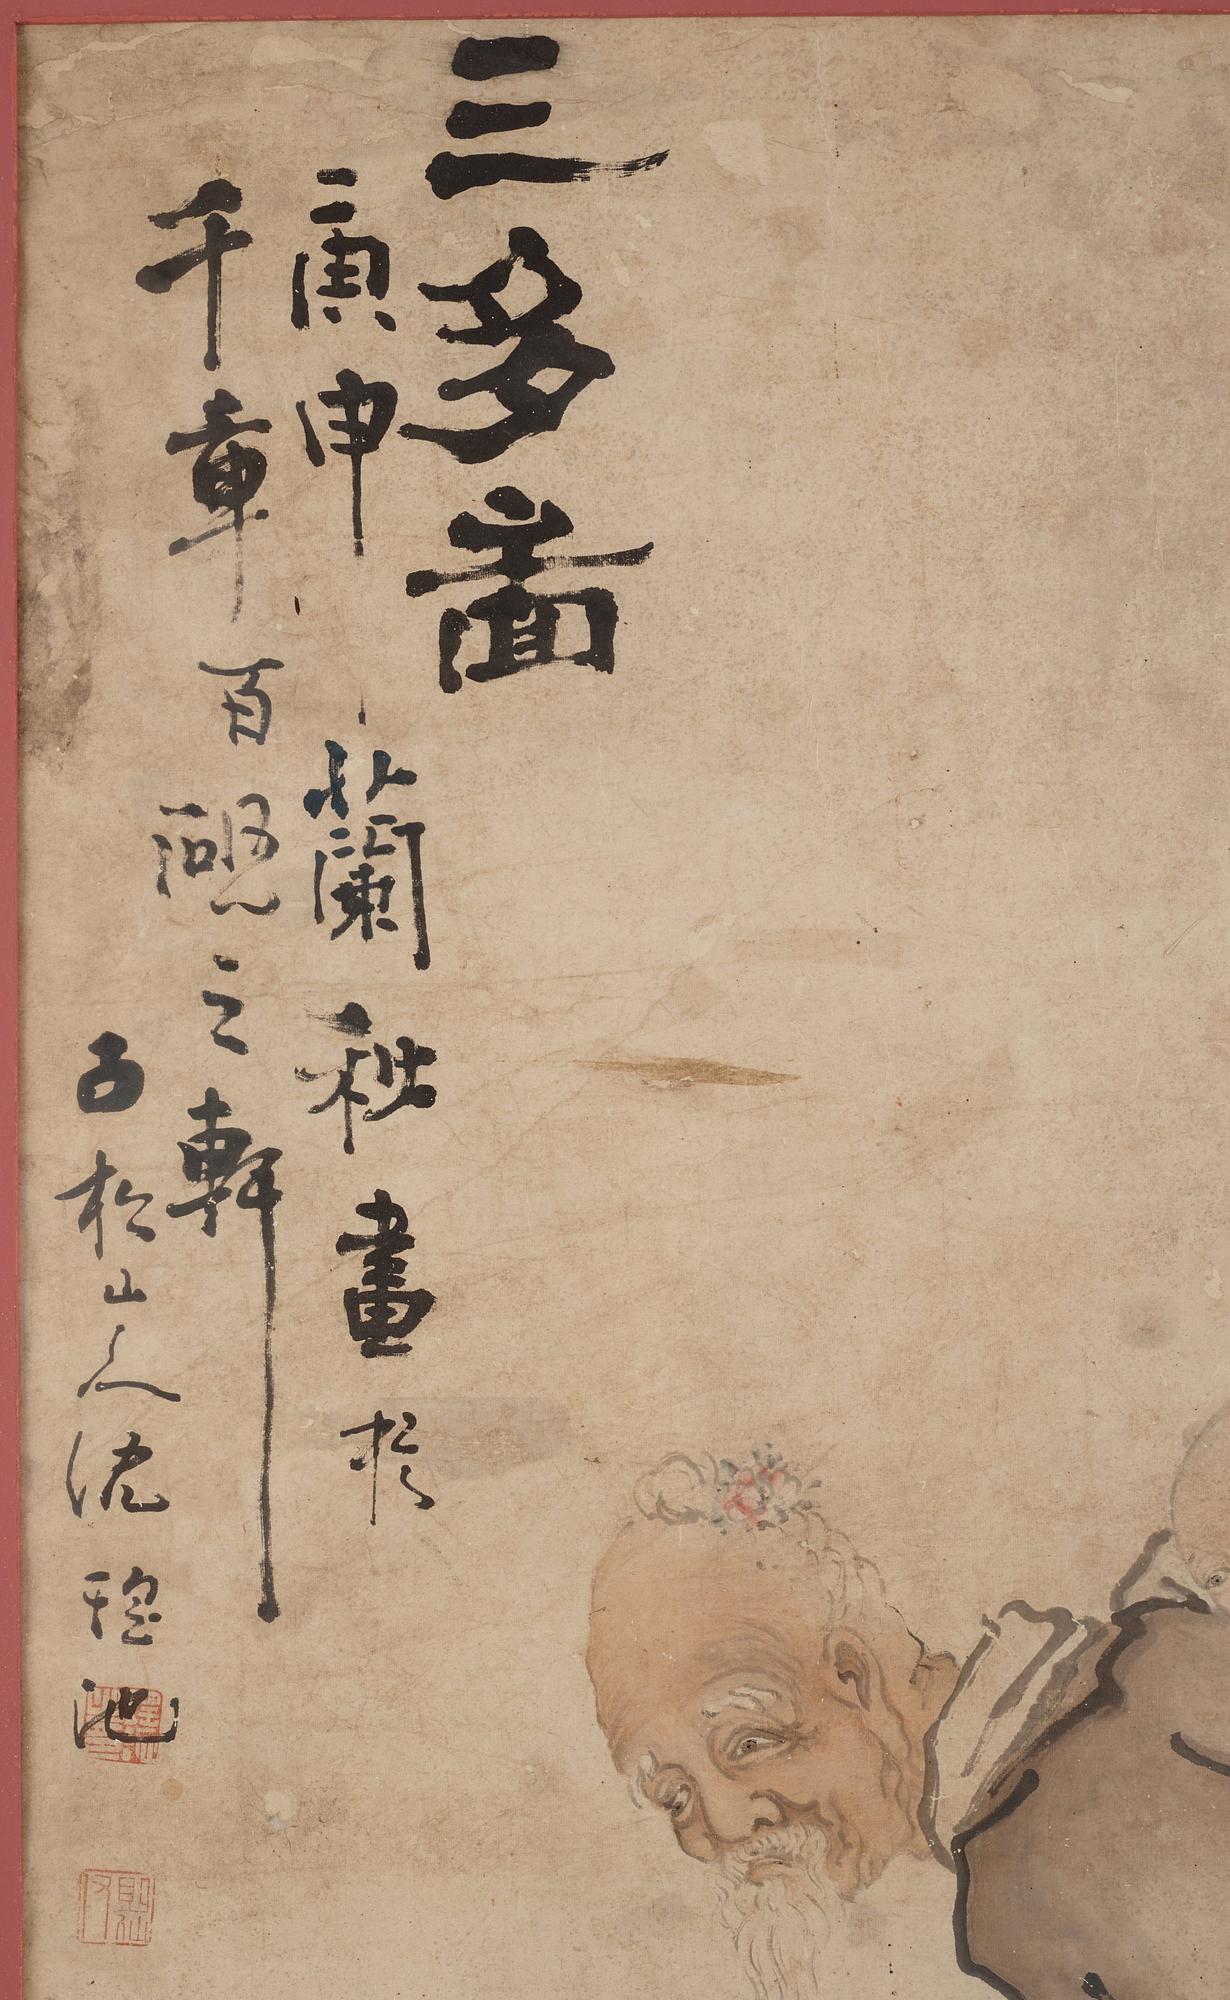 三多圖
庚申蘭秋畫於
千章百硯之軒
古松山人沈
池